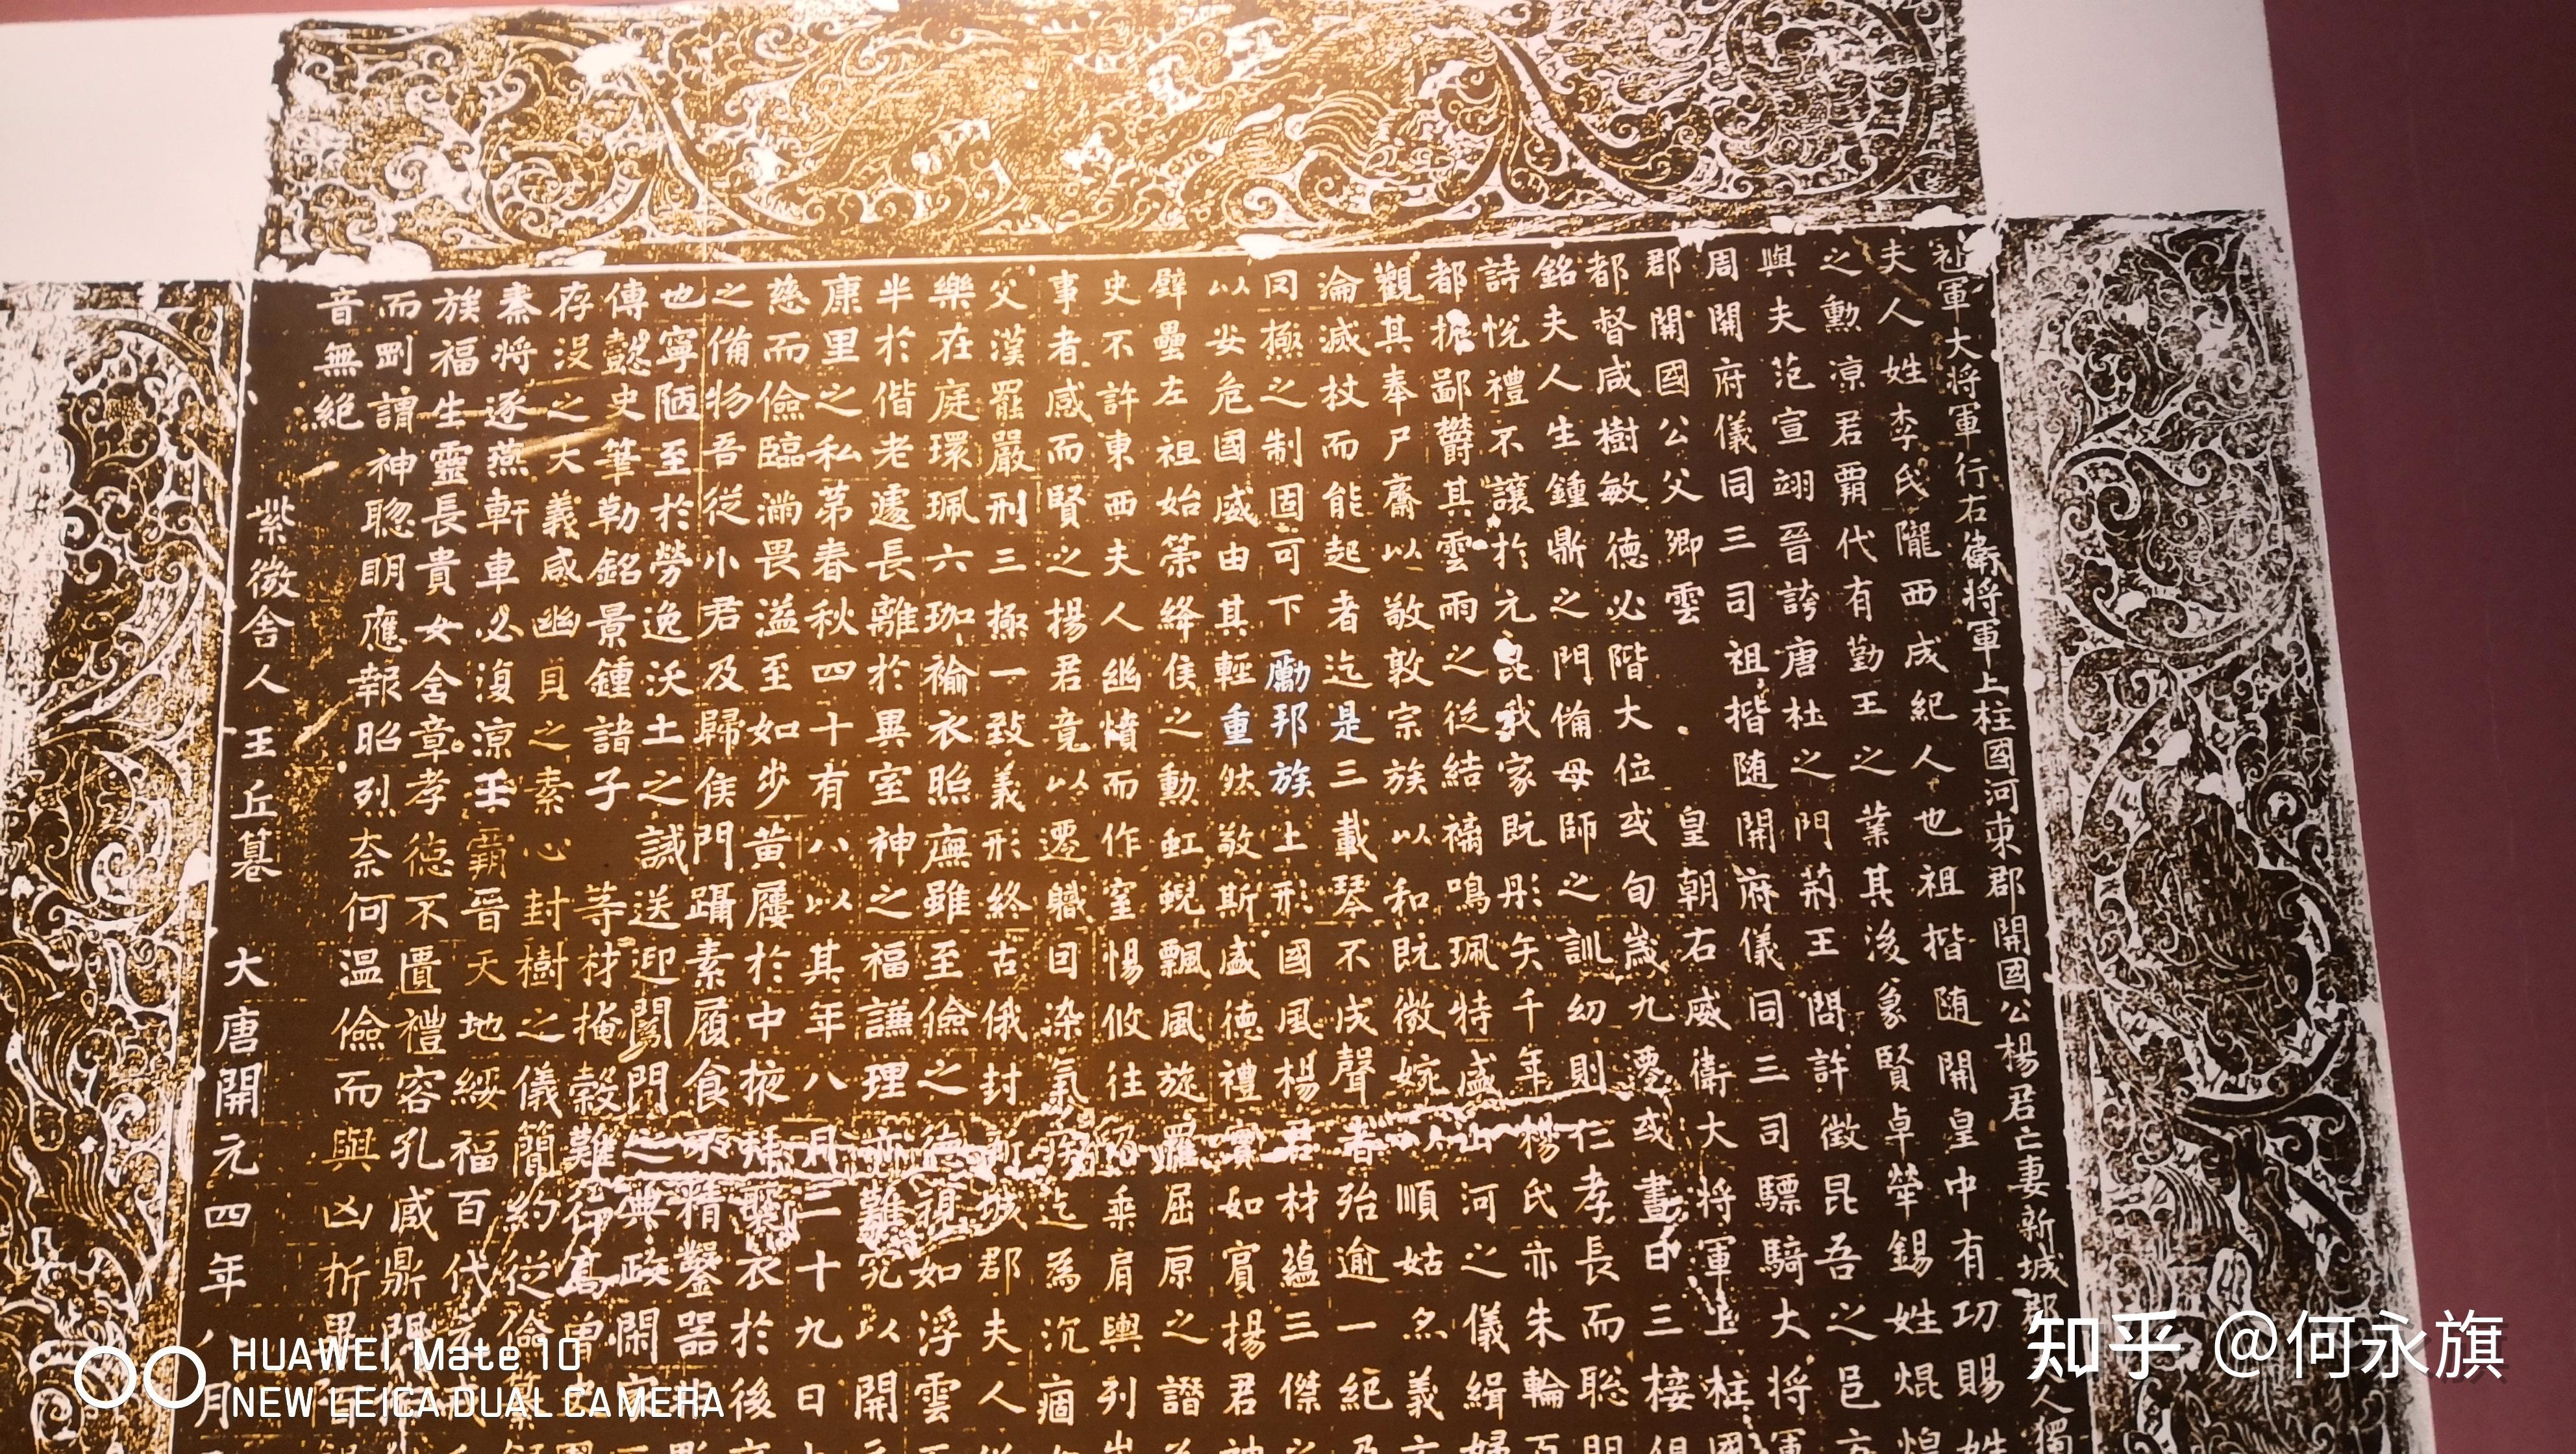 軍大將軍行右衛將軍上柱國河東郡開國公楊君亡妻新城郡夫人獨
夫人姓李氏隴西成紀人也祖楷隨開皇中有功賜姓
之勳涼君霸代有勤王之業其後象賢卓犖錫姓焜煌
與夫范宣翊晉誇唐杜之門荊王問許徵昆吾之邑
周開府儀同三司祖揩隨開府儀同三司驃騎大將軍
郡開國公父卿雲皇朝右威衛大將軍上柱國
都督咸樹敏德必階大位或旬歲九遷或晝日三接
銘夫人生鍾鼎之門備母師之訓幼則仁孝長而聡
詩悅禮不讓於元昆我家既彤矢千年楊氏亦朱輪百
都擔鄙鬱其雲雨之從結褵鳴珮特盛山河之儀緝婦
觀其奉尸齋以敬敦宗族以和既微婉順姑尒義
淪滅杖而能起者迄是三載琴不成聲者殆逾一紀
同極之制固可下勵邦族上形國風楊君材蘊三傑
以安危國威由其輕重然敬斯盛德禮實如賓揚君
壁壘左祖始策絳侯之勳虹蜺飄風旋羅屈原之譖
史不許東西夫人幽憤而作室惕攸往乘肩輿列
事者感而賢之揚君竟以遷軄因染氣疾迄為沉痼
父漢罷嚴刑三極一致義形終古俄封新城郡夫人
樂在庭環珮六珈褕衣照廡雖至儉之德視如浮雲
半於偕老遽長離於異室神之福謙理亦難究以開
康里之私第春秋四十有八以其年八月二十九日
慈而儉臨滿畏溢至如步黃屨於中掖拜褧衣於後
之備物吾從小君及歸侯門躡素屐食不精鑿器
也寧陋至於勞逸沃土之誡送迎闈門之典政閑
傳懿史筆勒銘景鍾諸子等材掩榖難行高曾
存沒之大義感幽貝之素心封樹之儀簡約從儉
秦將逐燕軒車必復涼王霸晉天地綏福百代
族福生靈長貴女含章孝德不匱禮容孔戚鼎
而劉謂神聡明應報昭烈奈何溫儉而與凶折
音無絕
紫微舍人王丘篹 大唐開元四年八月
HUAWEI Mate 10
NEW LEICA DUAL CAMERA
知乎 @何永旗